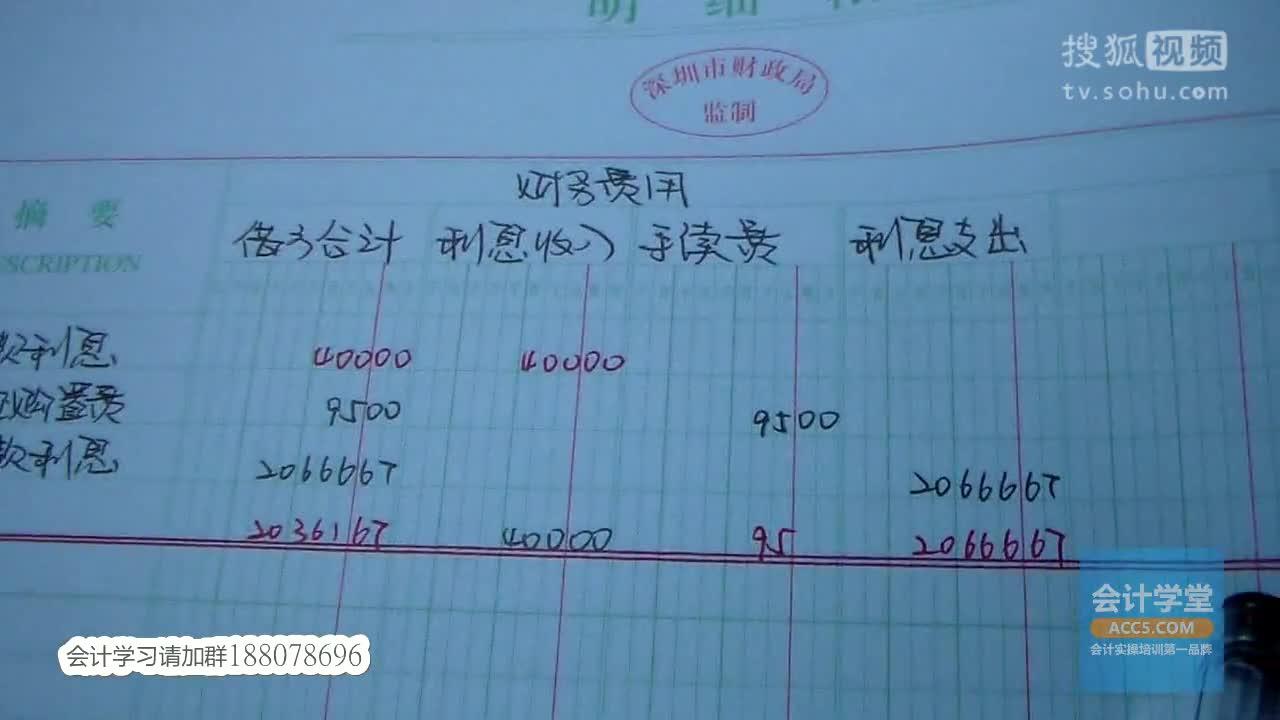 明 细
搜狐视频
tv.sohu.com
深圳市财政局
监制
财务费用
摘 要
借方合计 利息收入 手续费 利息支出
SCRIPTION
款利息 40000 40000
购置费 9500 9500
款利息 2066667 2066667
2036167 40000 95 2066667
会计学堂
ACC5.COM
会计实操培训第一品牌
会计学习请加群188078696